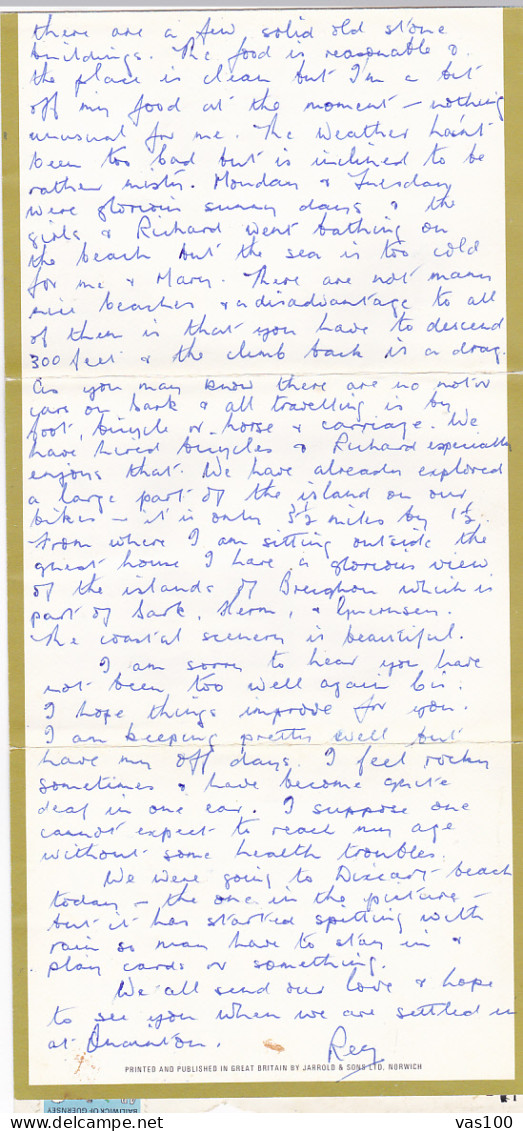 there are a few solid old stone
buildings. The food is reasonable &
the place is clean but I'm a bit
off my food at the moment – nothing
unusual for me. The weather hasn't
been too bad but is inclined to be
rather misty. Monday & Tuesday
were glorious sunny days & the
girls & Richard went bathing on
the beach but the sea is too cold
for me & Mary. There are not many
nice beaches & a disadvantage to all
of them is that you have to descend
300 feet & the climb back is a drag.
As you may know there are no motor
cars on Sark & all travelling is by
foot, bicycle or horse & carriage. We
have hired bicycles & Richard especially
enjoys that. We have already explored
a large part of the island on our
bikes – it is only 3½ miles by 1½.
From where I am sitting outside the
guest house I have a glorious view
of the islands of Breqhou which is
part of Sark, Herm, & Guernsey.
The coastal scenery is beautiful.
I am sorry to hear you have
not been too well again
I hope things improve for you.
I am keeping pretty well but
have my off days. I feel rocky
sometimes & have become quite
deaf in one ear. I suppose one
cannot expect to reach my age
without some health troubles.
We were going to Dixcart beach
today – the one in the picture –
but it has started spitting with
rain so may have to stay in &
play cards or something.
We all send our love & hope
to see you when we are settled in
at Quainton.
Reg
PRINTED AND PUBLISHED IN GREAT BRITAIN BY JARROLD & SONS LTD, NORWICH
BAILIWICK OF GUERNSEY
vas100